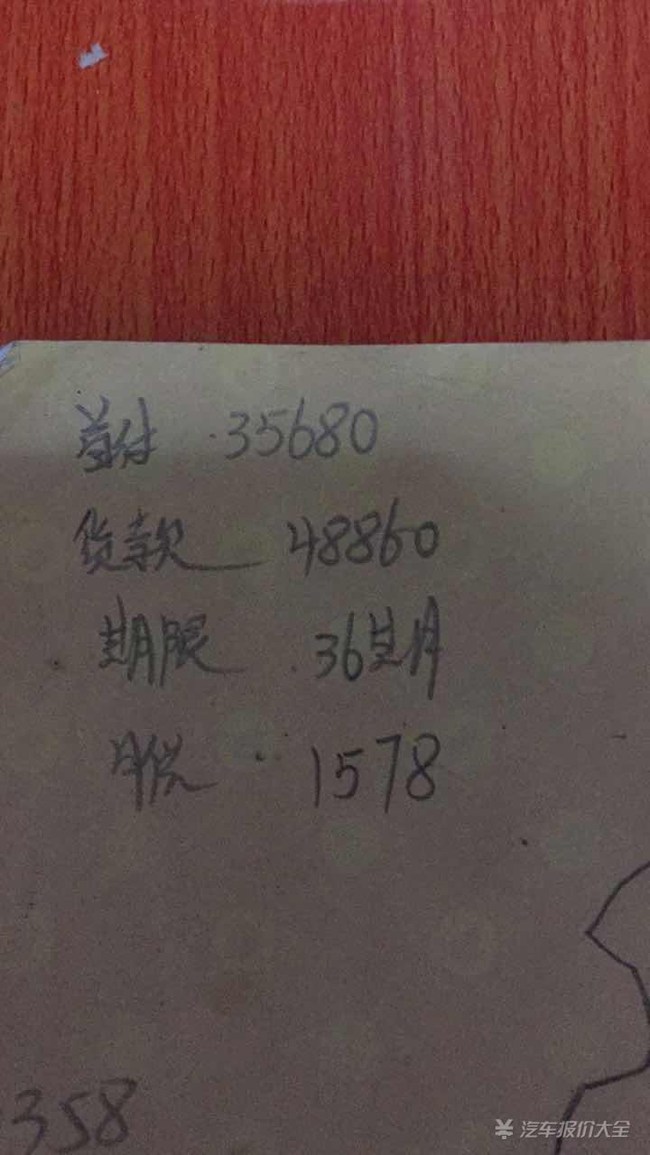 首付 35680
贷款 48860
期限 36期月
月供 1578
358
¥ 汽车报价大全